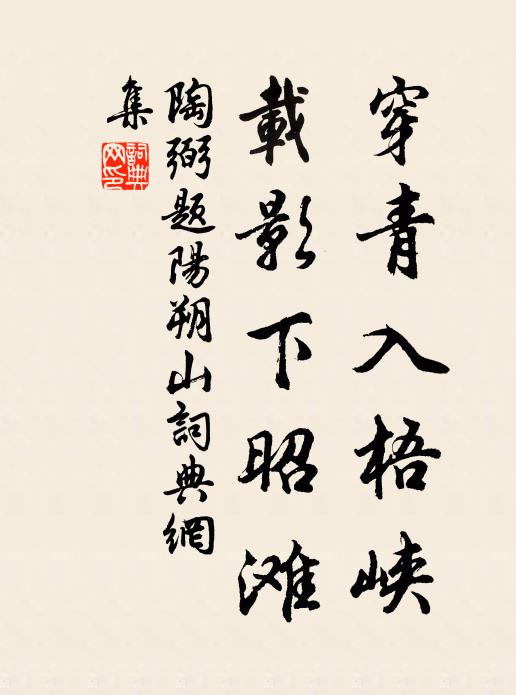 穿青入梧峡
載影下昭滩
陶弼题陽朔山詞典網
集
詞典網印